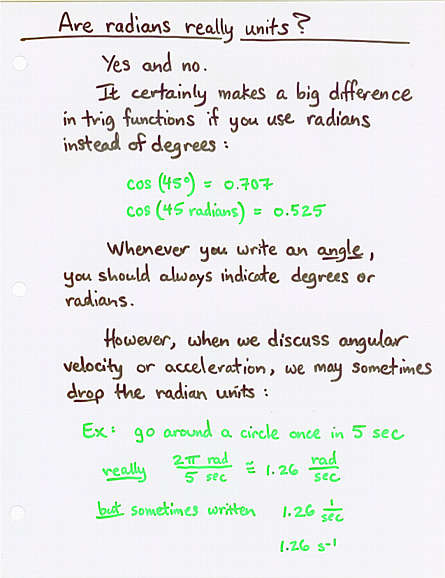 Are radians really units?
Yes and no.
It certainly makes a big difference
in trig functions if you use radians
instead of degrees:
cos (45°) = 0.707
cos (45 radians) = 0.525
Whenever you write an angle,
you should always indicate degrees or
radians.
However, when we discuss angular
velocity or acceleration, we may sometimes
drop the radian units:
Ex: go around a circle once in 5 sec
really 2π rad / 5 sec ≅ 1.26 rad / sec
but sometimes written 1.26 1 / sec
1.26 s⁻¹